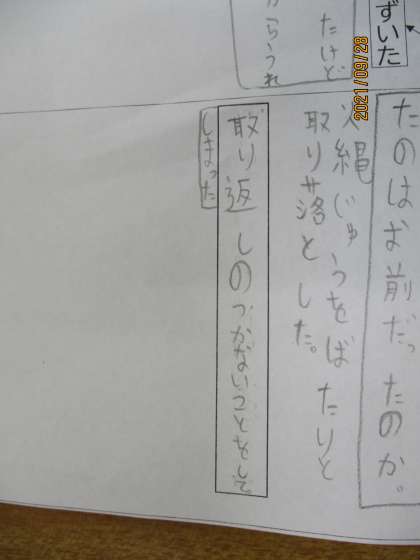 ずいた
たけど
からうれ
たのはお前だったのか。
火縄じゅうをばたりと
取り落とした。
取り返しのつかないことをして
しまった
2021/09/28